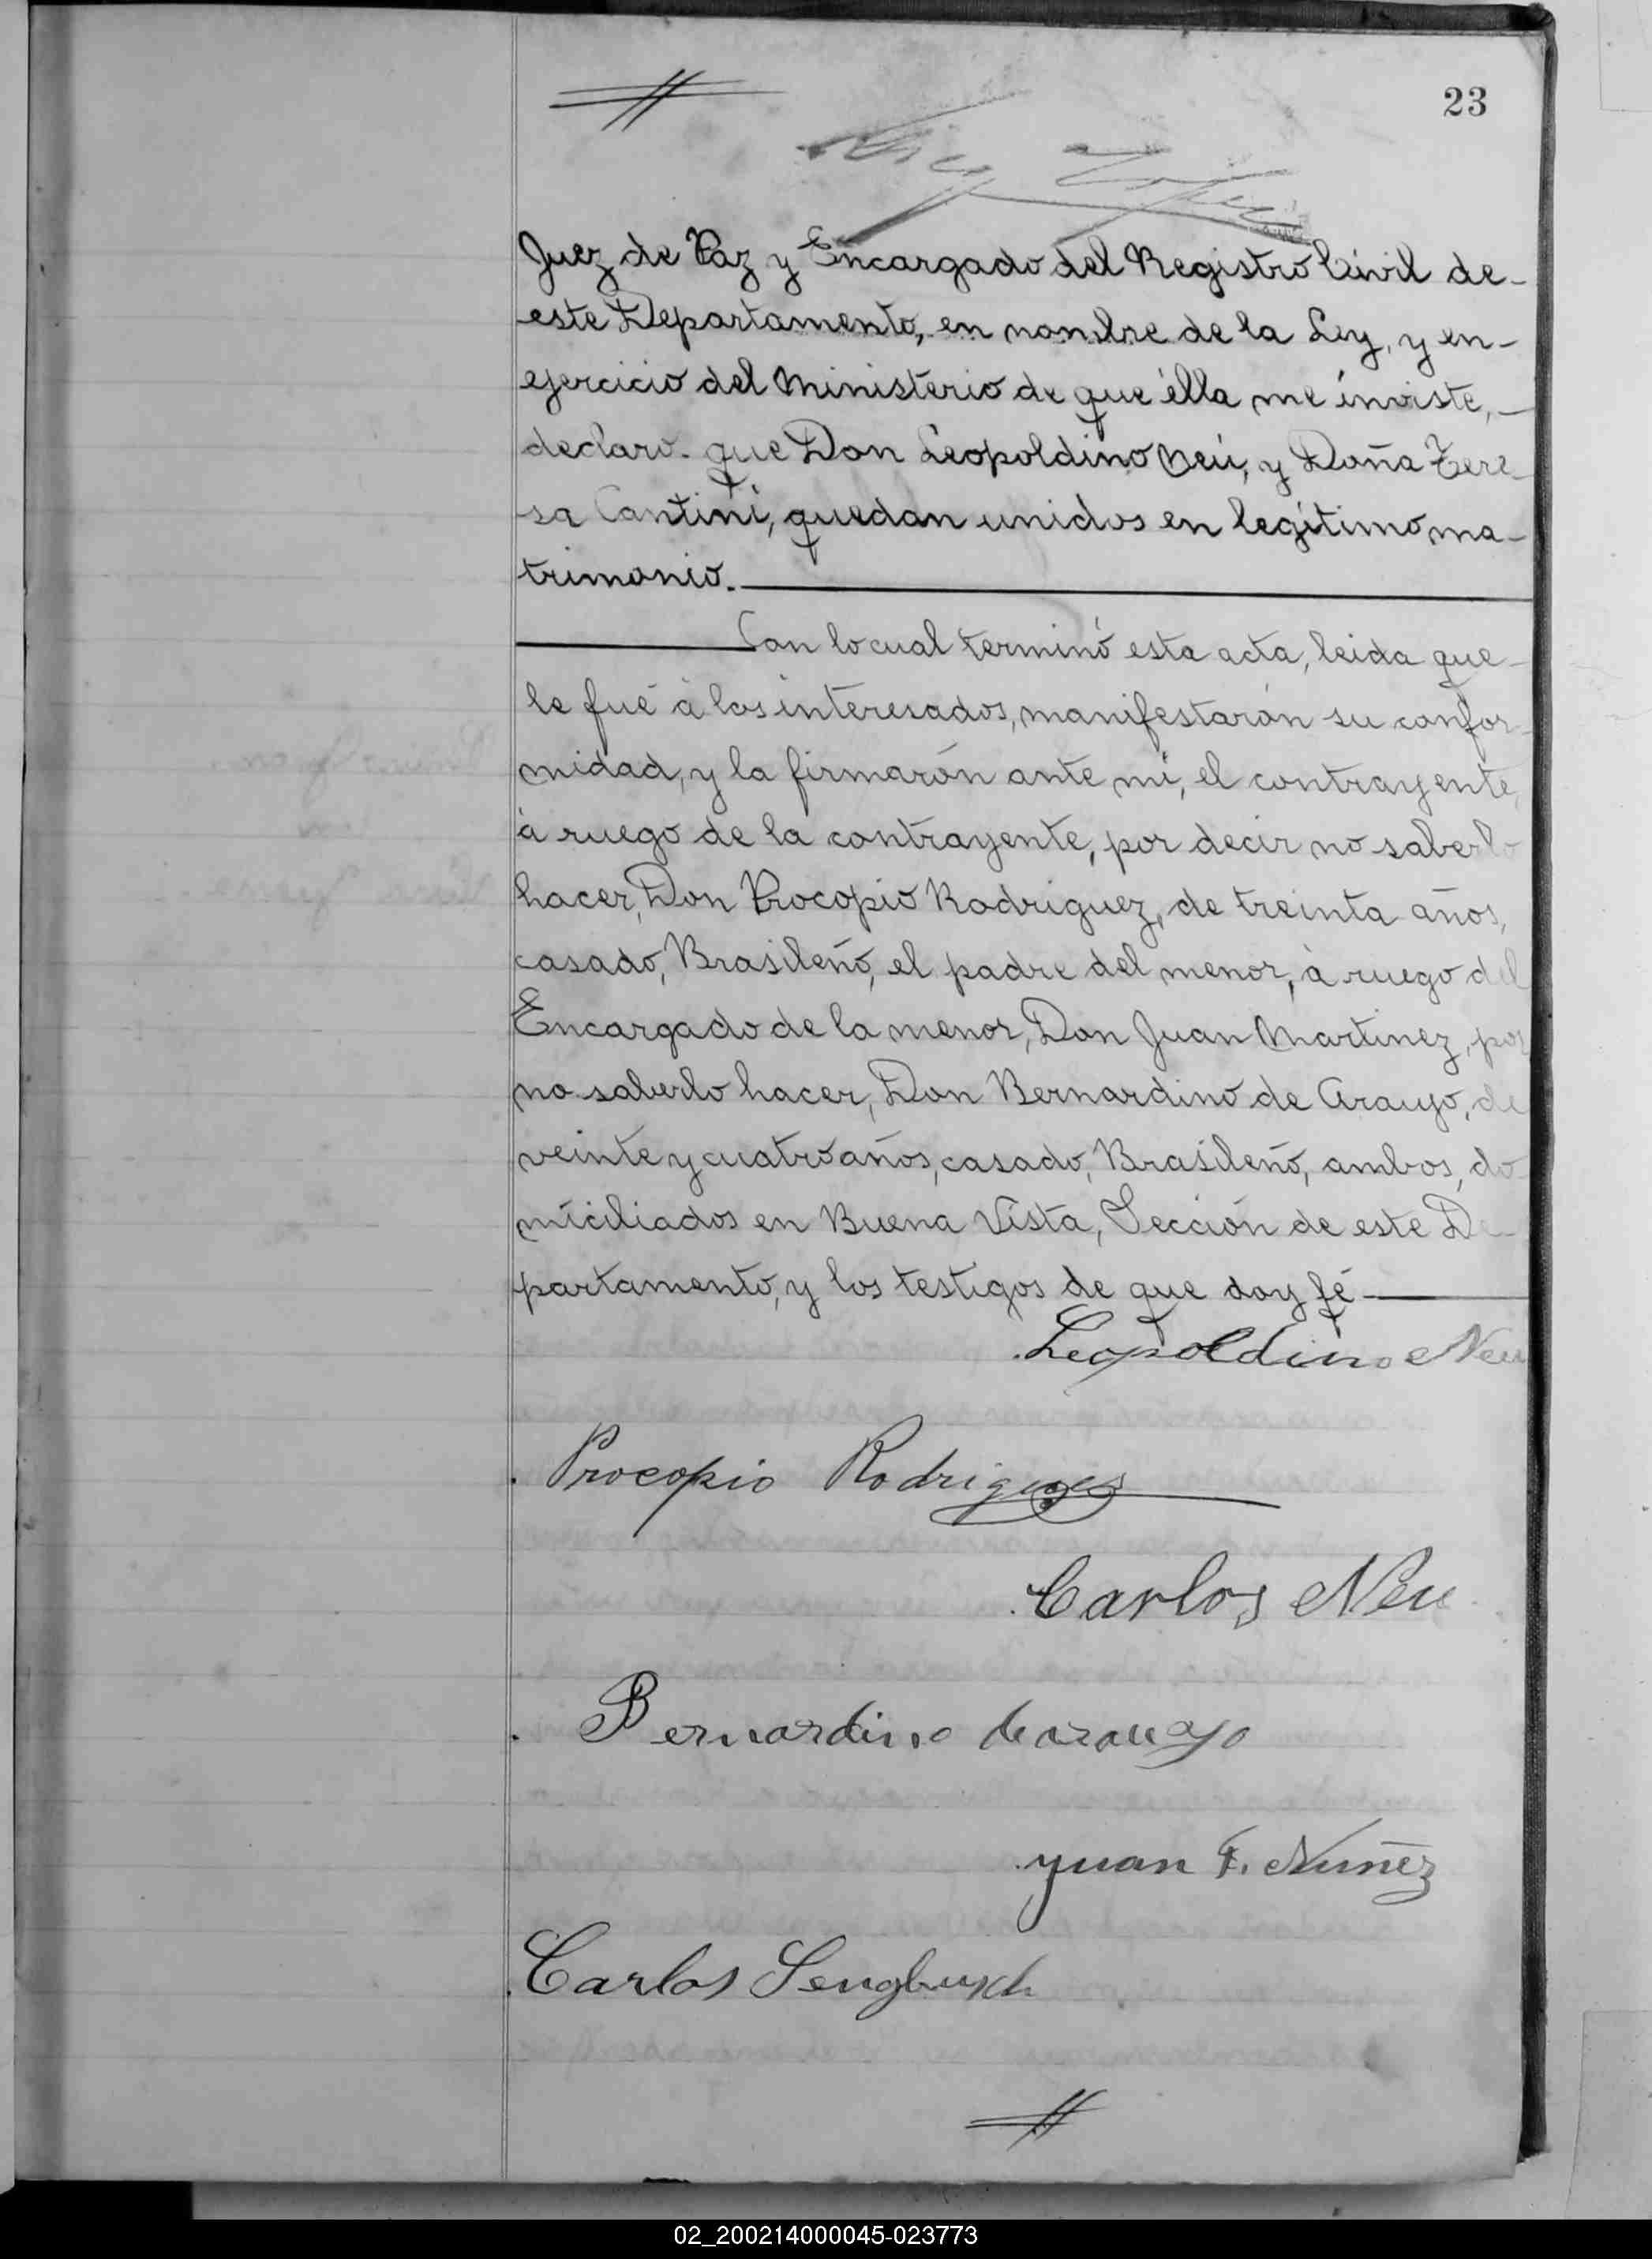 23
Juez de Paz y Encargado del Registro Civil de-
este Departamento, en nombre de la Ley, y en-
ejercicio del Ministerio de que élla me inviste,
declaro que Don Leopoldino Neú, y Doña Tere
sa Cantini, quedan unidos en legítimo ma-
trimonio.
Con lo cual terminó esta acta, leida que-
le fué à los interesados, manifestarón su confor-
midad, y la firmarón ante mí, el contrayente,
à ruego de la contrayente, por decir no saberlo
hacer, Don Procopio Rodriguez, de treinta años,
casado, Brasileño, el padre del menor, à ruego del
Encargado de la menor, Don Juan Martinez, por
no saberlo hacer, Don Bernardino de Araujo, de
veinte y cuatro años, casado, Brasileño, ambos, do
miciliados en Buena Vista, Sección de este De-
partamento, y los testigos de que doy fé
Leopoldino Neu
Procopio Rodrigues
Carlos Neu
Bernardino dearaujo
Juan F. Nuñez
Carlos Sengbusch
02_200214000045-023773